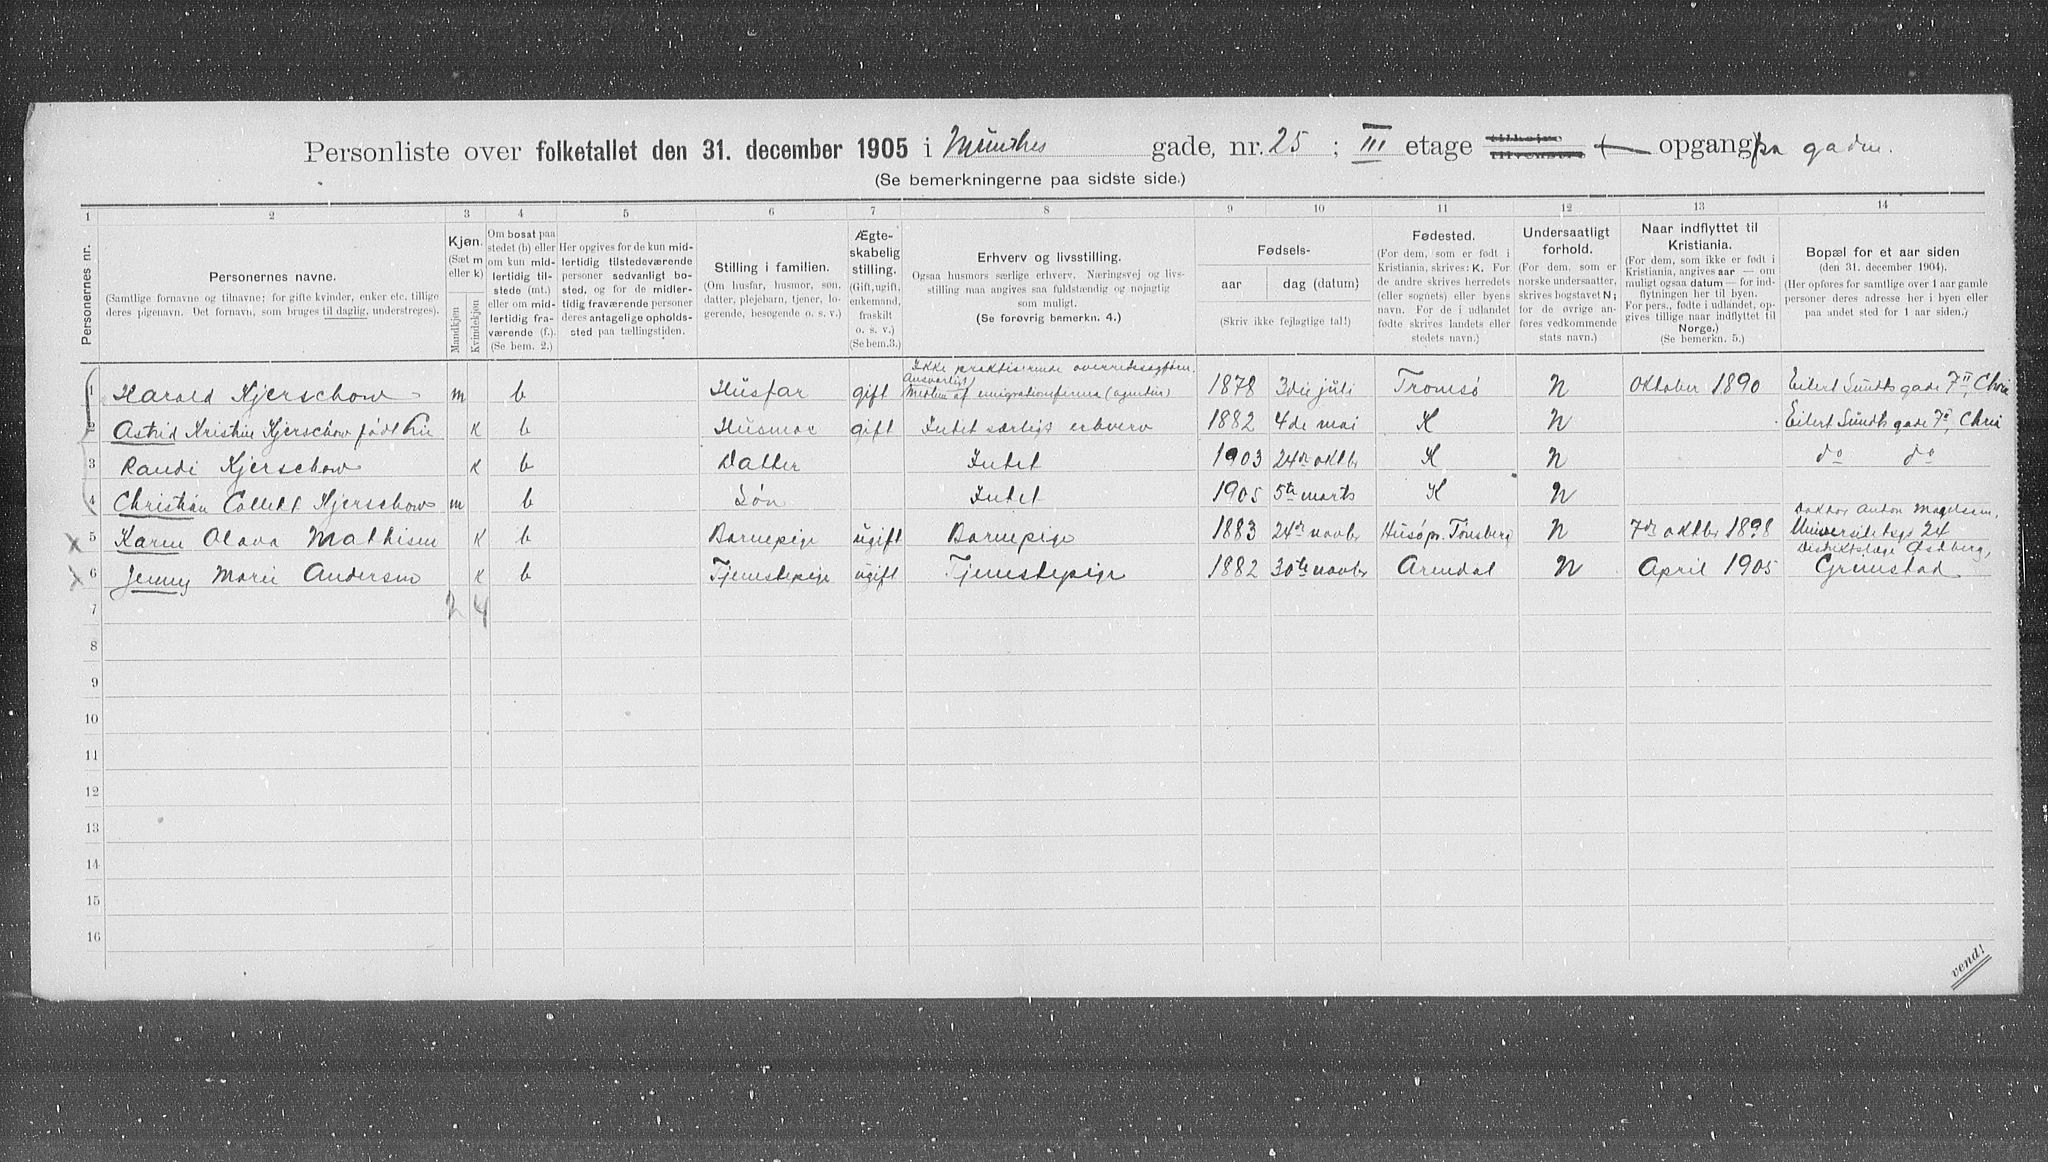 Personliste over folketallet den 31. december 1905 i Munthes gade, nr. 25 ; III etage opgang paa gaden.
(Se bemerkningerne paa sidste side.)
1 2 3 4 5 6 7 8 9 10 11 12 13 14
Personernes nr.
Personernes navne.
(Samtlige fornavne og tilnavne; for gifte kvinder, enker etc. tillige
deres pigenavn. Det fornavn, som bruges til daglig, understreges).
Kjøn.
(Sæt m
eller k)
Mandkjøn
Kvindekjøn
Om bosat paa
stedet (b) eller
om kun mid-
lertidig til-
stede (mt.)
eller om mid-
lertidig fra-
værende (f.).
(Se bem. 2.)
Her opgives for de kun mid-
lertidig tilstedeværende
personer sedvanligt bo-
sted, og for de midler-
tidig fraværende personer
deres antagelige opholds-
sted paa tællingstiden.
Stilling i familien.
(Om husfar, husmor, søn,
datter, plejebarn, tjener, lo-
gerende, besøgende o. s. v.)
Ægte-
skabelig
stilling.
(Gift, ugift,
enkemand,
fraskilt
o. s. v.)
(Se bem.3.)
Erhverv og livsstilling.
Ogsaa husmors særlige erhverv. Næringsvej og livs-
stilling maa angives saa fuldstændig og nøjagtig
som muligt.
(Se forøvrig bemerkn. 4.)
Fødsels-
aar dag (datum)
(Skriv ikke fejlagtige tal!)
Fødested.
(For dem, som er født i
Kristiania, skrives: K. For
de andre skrives herredets
(eller sognets) eller byens
navn. For de i udlandet
fødte skrives landets eller
stedets navn.)
Undersaatligt
forhold.
(For dem, som er
norske undersaatter,
skrives bogstavet N;
for de øvrige an-
føres vedkommende
stats navn.)
Naar indflyttet til
Kristiania.
(For dem, som ikke er født i
Kristiania, angives aar — om
muligt ogsaa datum — for ind-
flytningen her til byen.
For pers., fødte i udlandet, op-
gives tillige naar indflyttet til
Norge.)
(Se bemerkn. 5.)
Bopæl for et aar siden
(den 31. december 1904).
(Her opføres for samtlige over 1 aar gamle
personer deres adresse her i byen eller
paa andet sted for 1 aar siden.)
Ikke praktiserende overretssagfører.
Ansvarligt
1 Harald Kjerschow m b Husfar gift Medlem af emigrationsfirma (agentur) 1878 3die juli Tromsø N Oktober 1890 Eilert Sundts gade 7 II, Chria
2 Astrid Kristine Kjerschow født k b Husmor gift Intet særligt erhverv 1882 4de mai K N Eilert Sundts gade 7, Chria
3 Randi Kjerschow k b Datter Intet 1903 24de oktbr K N do do
4 Christian Collett Kjerschow m b Søn Intet 1905 5te marts K N
Doktor Anton Magelssen,
5 Karen Olava Mathisen k b Barnepige ugift Barnepige 1883 24de novbr Husø pr. Tønsberg N 7de oktbr 1898 Universitetsg 24
Distriktslæge Østberg,
6 Jenny Marie Andersen k b Tjenestepige ugift Tjenestepige 1882 30te novbr Arendal N April 1905 Grimstad
7 2 4
8
9
10
11
12
13
14
15
16
vend!